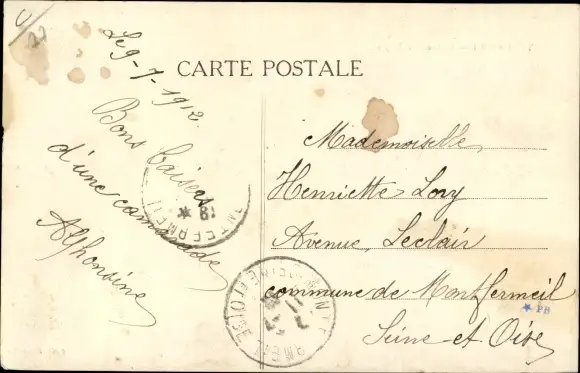 CARTE POSTALE
Le 9-7-1912.
Bons baisers
d'une camarade
Alphonsine
Mademoiselle
Henriette Lory
Avenue Leclair
commune de Montfermeil
Seine-et-Oise
MONTFERMEIL
SEINE-ET-OISE
PB